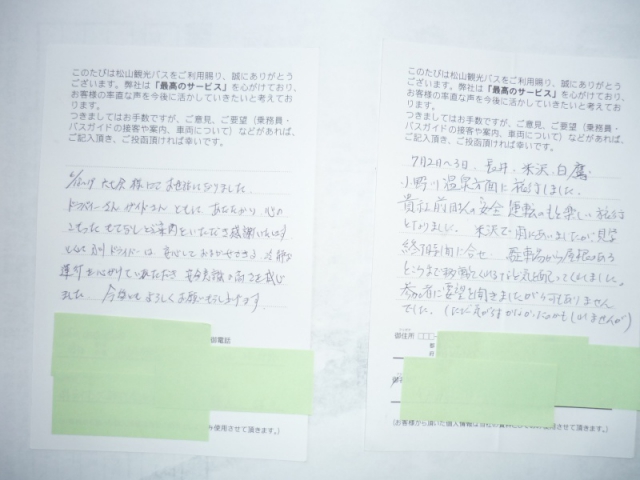 このたびは松山観光バスをご利用賜り、誠にありがとう
ございます。弊社は「最高のサービス」を心がけており、
お客様の率直な声を今後に活かしていきたいと考えてお
ります。
つきましてはお手数ですが、ご意見、ご要望(乗務員・
バスガイドの接客や案内、車両について)などがあれば、
ご記入頂き、ご投函頂ければ幸いです。
お世話になりました
ドライバーさん ガイドさん ともに あたたかい 心の
こもった おもてなしとご案内をいただき感謝いたします
ドライバーは 安心しておまかせできる 冷静な
運転を心がけていただき 安全意識の高さを感じ
ました 今後ともよろしくお願いもうしあげます
御電話
使用させて頂きます。)
このたびは松山観光バスをご利用賜り、誠にありがとう
ございます。弊社は「最高のサービス」を心がけており、
お客様の率直な声を今後に活かしていきたいと考えてお
ります。
つきましてはお手数ですが、ご意見、ご要望(乗務員・
バスガイドの接客や案内、車両について)などがあれば、
ご記入頂き、ご投函頂ければ幸いです。
7月2日~3日、長井、米沢、白鷹
小野川温泉方面に旅行しました。
安全運転のもと楽しい旅行
となりました。米沢で雨にあいましたが、見学
終了時間に合せ、駐車場から屋根のある
ところまで移動してくれるなど気を配ってくれました。
参加者に要望を聞きましたが何もありません
でした。(ただ気がすすまなかったのかもしれませんが)
御住所
(お客様から頂いた個人情報は
使用させて頂きます。)